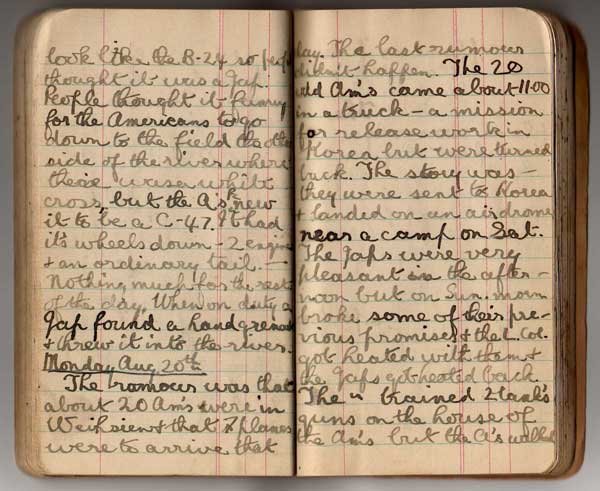 look like the B-24 so people
thought it was a Jap.
People thought it funny
for the Americans to go
down to the field the other
side of the river where
there was a white
cross, but the A's knew
it to be a C-47. It had
it's wheels down - 2 engines
+ an ordinary tail. -
Nothing much for the rest
of the day. When on duty a
Jap found a handgrenade
+ threw it into the river.
Monday Aug 20th
The rumour was that
about 20 Am's were in
Weihsien + that 7 planes
were to arrive that
day. The last rumour
didn't happen. The 20
odd Am's came about 11:00
in a truck - a mission
for release work in
Korea but were turned
back. The story was -
they were sent to Korea
+ landed on an airdrome
near a camp on Sat.
The Japs were very
pleasant in the after-
noon but on Sun. morn
broke some of their pre-
vious promises + the L. Col.
got heated with them +
the Japs got heated back.
The " trained 2 tank's
guns on the house of
the Am's but the A's walked